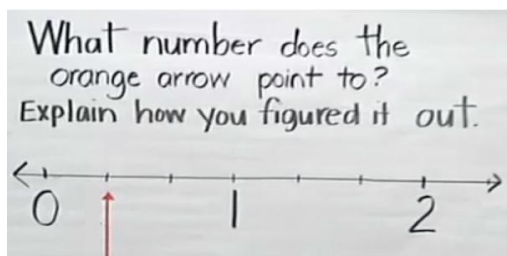 What number does the
orange arrow point to?
Explain how you figured it out.
0 1 2